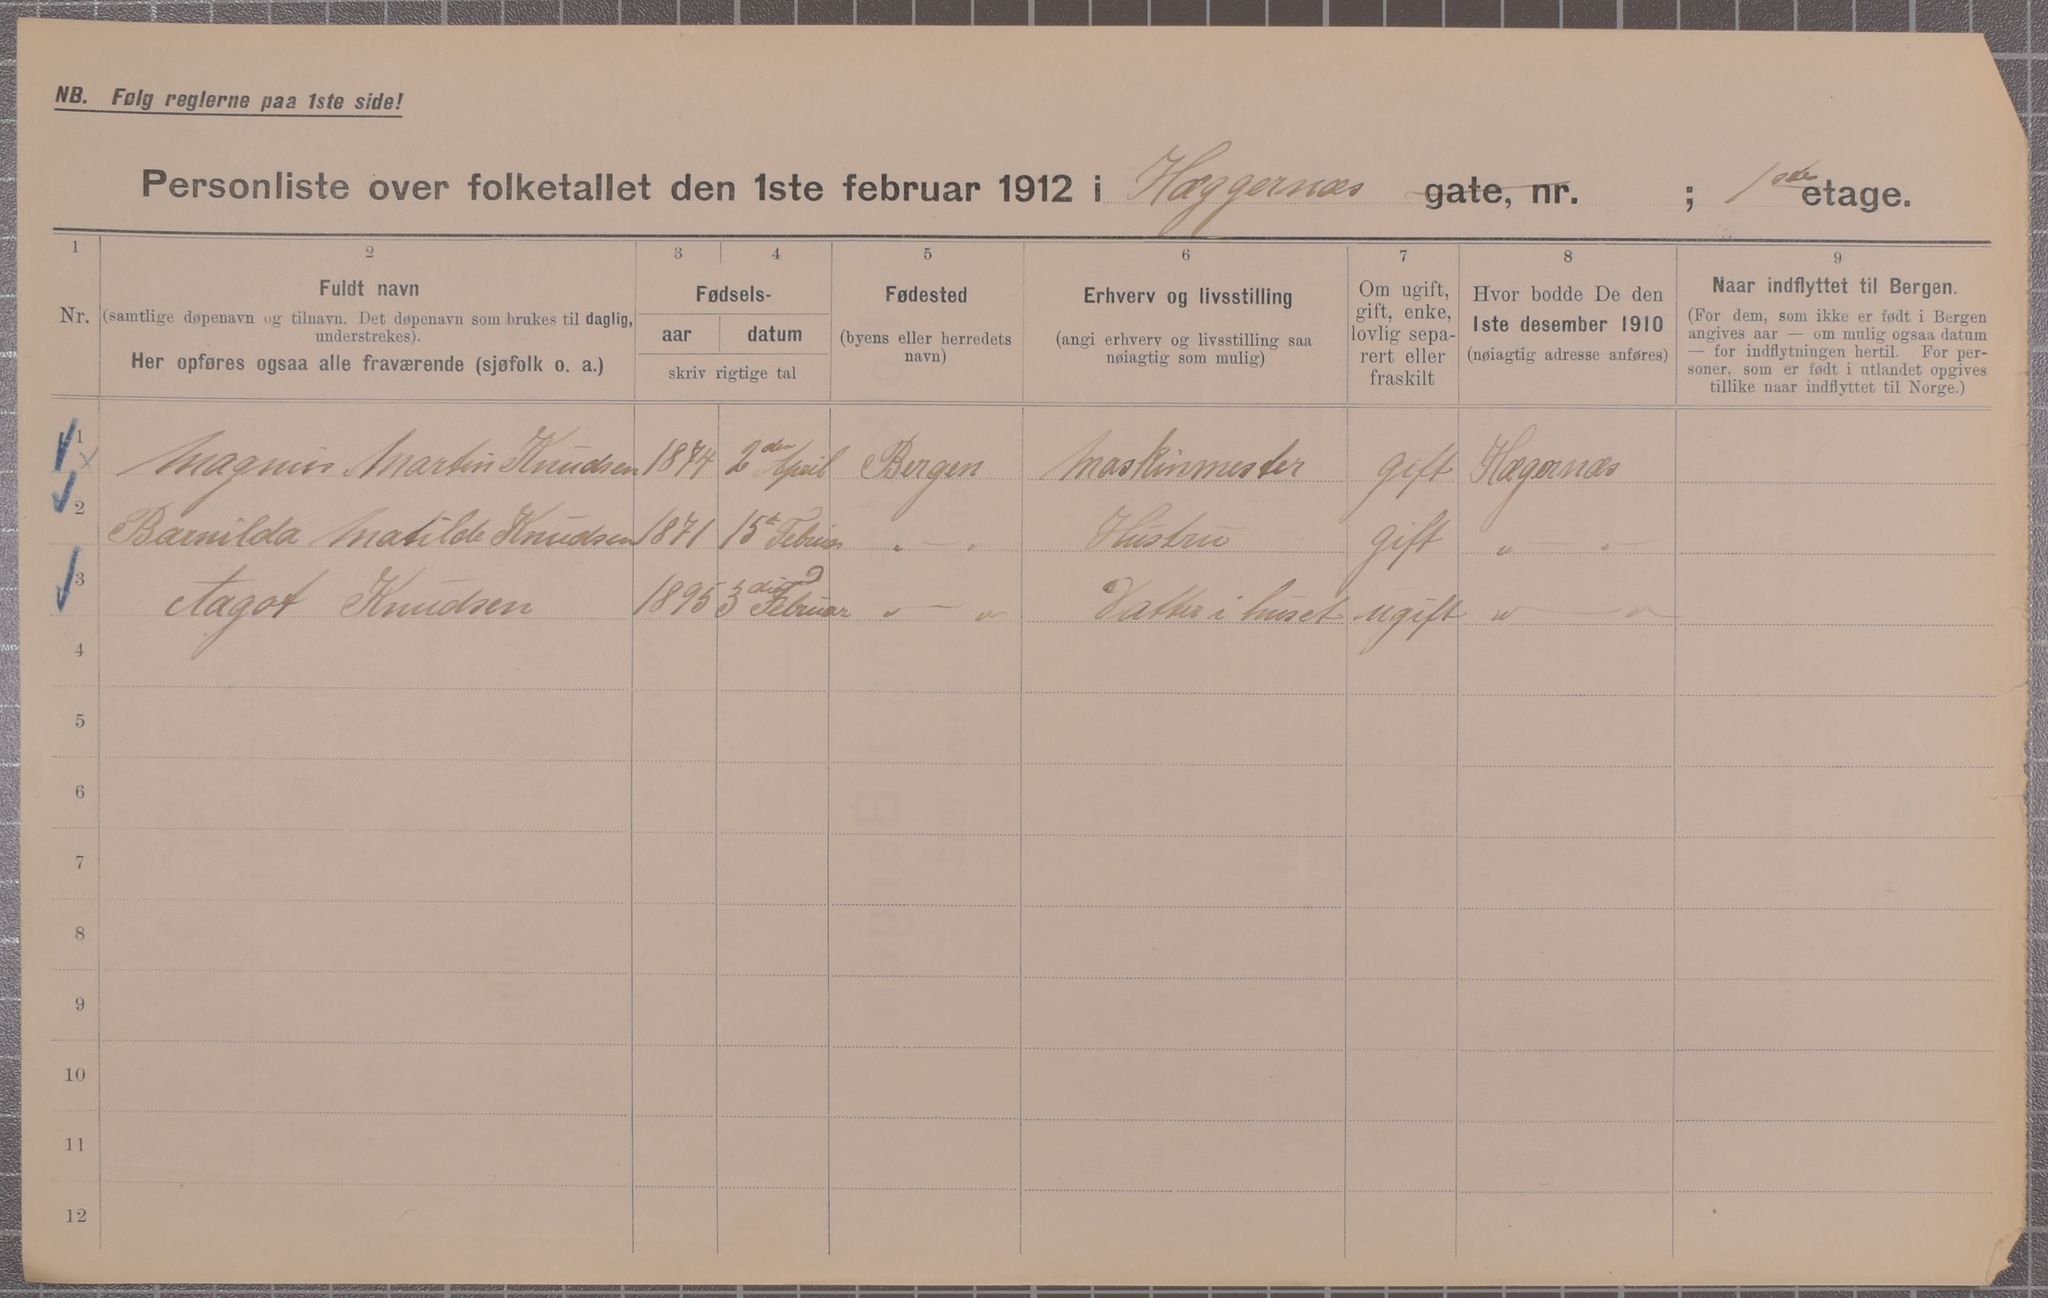 NB. Følg reglerne paa 1ste side!
Personliste over folketallet den 1ste februar 1912 i Hæggernæs gate, nr. ; 1ste etage.
1 2 3 4 5 6 7 8 9
Nr.
Fuldt navn
(samtlige døpenavn og tilnavn. Det døpenavn som brukes til daglig,
understrekes).
Her opføres ogsaa alle fraværende (sjøfolk o. a.)
Fødsels-
aar datum
skriv rigtige tal
Fødested
(byens eller herredets
navn)
Erhverv og livsstilling
(angi erhverv og livsstilling saa
nøiagtig som mulig)
Om ugift,
gift, enke,
lovlig sepa-
rert eller
fraskilt
Hvor bodde De den
1ste desember 1910
(nøiagtig adresse anføres)
Naar indflyttet til Bergen.
(For dem, som ikke er født i Bergen
angives aar — om mulig ogsaa datum
— for indflytningen hertil. For per-
soner, som er født i utlandet opgives
tillike naar indflyttet til Norge.)
1 Magnus Martin Knudsen 1874 2den April Bergen Maskinmester gift Hægernæs
2 Barnilda Matilde Knudsen 1871 15de Februar " — " Hustru gift " — " —
3 Aagot Knudsen 1895 3die Februar " — " Datter i huset ugift " — "
4
5
6
7
8
9
10
11
12